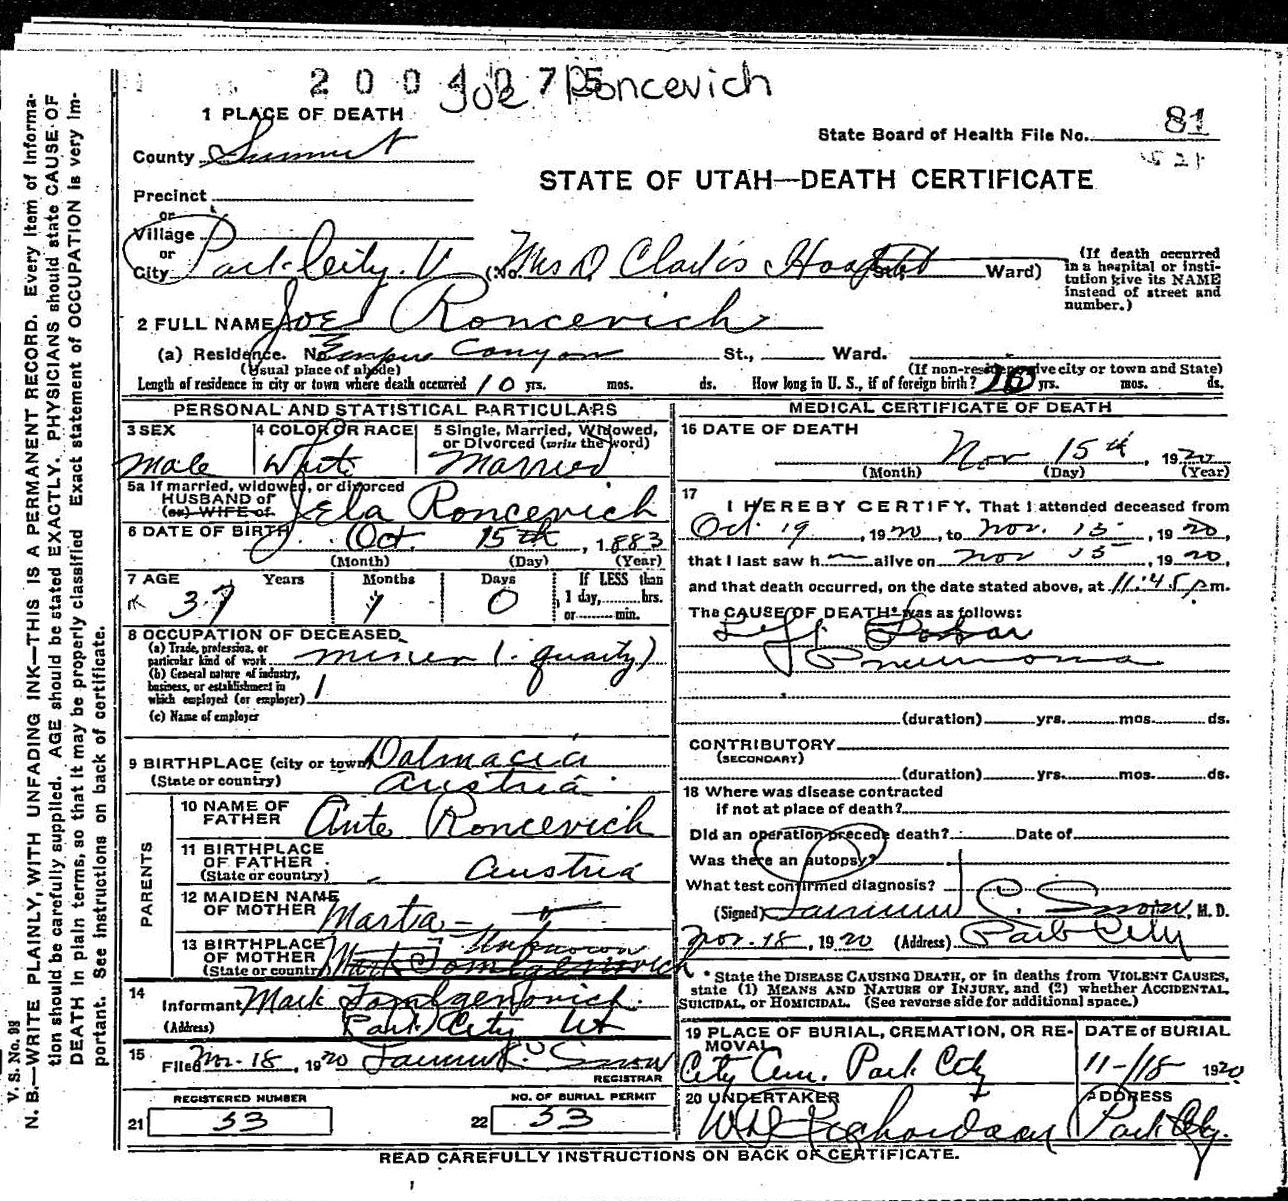 2004075
Joe Roncevich
1 PLACE OF DEATH
State Board of Health File No. 81
521
County Summit
STATE OF UTAH—DEATH CERTIFICATE
Precinct
or
Village
or
City Park City. U (No. Mrs D Clark's Hospital St., Ward)
(If death occurred in a hospital or institution give its NAME instead of street and number.)
2 FULL NAME Joe Roncevich
(a) Residence. No Empire Canyon St., Ward.
(Usual place of abode)
(If non-resident give city or town and State)
Length of residence in city or town where death occurred 10 yrs. mos. ds. How long in U. S., if of foreign birth? 10 yrs. mos. ds.
PERSONAL AND STATISTICAL PARTICULARS
3 SEX
Male
4 COLOR OR RACE
White
5 Single, Married, Widowed, or Divorced (write the word)
Married
5a If married, widowed, or divorced
HUSBAND of
(or) WIFE of
Jela Roncevich
6 DATE OF BIRTH Oct. 15th, 1883
(Month) (Day) (Year)
7 AGE Years Months Days If LESS than
37 1 0 1 day, hrs.
or min.
8 OCCUPATION OF DECEASED
(a) Trade, profession, or particular kind of work miner (quartz)
(b) General nature of industry, business, or establishment in which employed (or employer)
(c) Name of employer
9 BIRTHPLACE (city or town) Dalmacia
(State or country) Austria
PARENTS
10 NAME OF FATHER Ante Roncevich
11 BIRTHPLACE OF FATHER (State or country) Austria
12 MAIDEN NAME OF MOTHER Marta —
13 BIRTHPLACE OF MOTHER (State or country) Unknown
14 Informant Mark
(Address) Park City Ut
15 Filed Nov. 18, 1920 Snow
REGISTRAR
REGISTERED NUMBER
21 53
NO. OF BURIAL PERMIT
22 53
MEDICAL CERTIFICATE OF DEATH
16 DATE OF DEATH
Nov 15th, 1920
(Month) (Day) (Year)
17 I HEREBY CERTIFY, That I attended deceased from
Oct. 19, 1920, to Nov. 15, 1920,
that I last saw h alive on Nov 15, 1920,
and that death occurred, on the date stated above, at 11:45 pm.
The CAUSE OF DEATH* was as follows:
Left Lobar
Pneumonia
(duration) yrs. mos. ds.
CONTRIBUTORY
(SECONDARY)
(duration) yrs. mos. ds.
18 Where was disease contracted
if not at place of death?
Did an operation precede death? Date of
Was there an autopsy?
What test confirmed diagnosis?
(Signed) Snow, M. D.
Nov. 18, 1920 (Address) Park City
* State the DISEASE CAUSING DEATH, or in deaths from VIOLENT CAUSES, state (1) MEANS AND NATURE OF INJURY, and (2) whether ACCIDENTAL, SUICIDAL, or HOMICIDAL. (See reverse side for additional space.)
19 PLACE OF BURIAL, CREMATION, OR REMOVAL
City Cem. Park City
DATE OF BURIAL
11-18 1920
20 UNDERTAKER
Richardson
ADDRESS
Park City.
READ CAREFULLY INSTRUCTIONS ON BACK OF CERTIFICATE.
V. S. No. 98
N. B.—WRITE PLAINLY, WITH UNFADING INK—THIS IS A PERMANENT RECORD. Every item of information should be carefully supplied. AGE should be stated EXACTLY. PHYSICIANS should state CAUSE OF DEATH in plain terms, so that it may be properly classified. Exact statement of OCCUPATION is very important. See instructions on back of certificate.